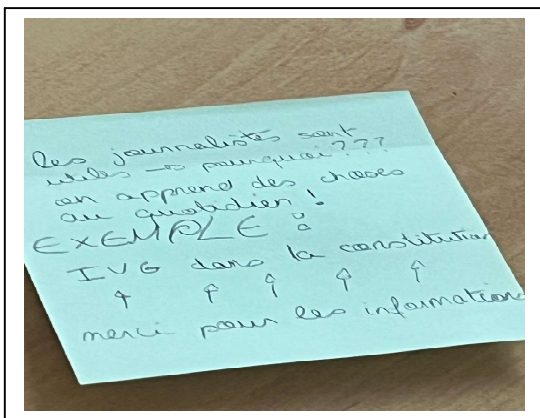 les journalistes sont
utiles → pourquoi ???
on apprend des choses
au quotidien !
EXEMPLE :
IVG dans la constitution
↑ ↑ ↑ ↑ ↑
merci pour les informations